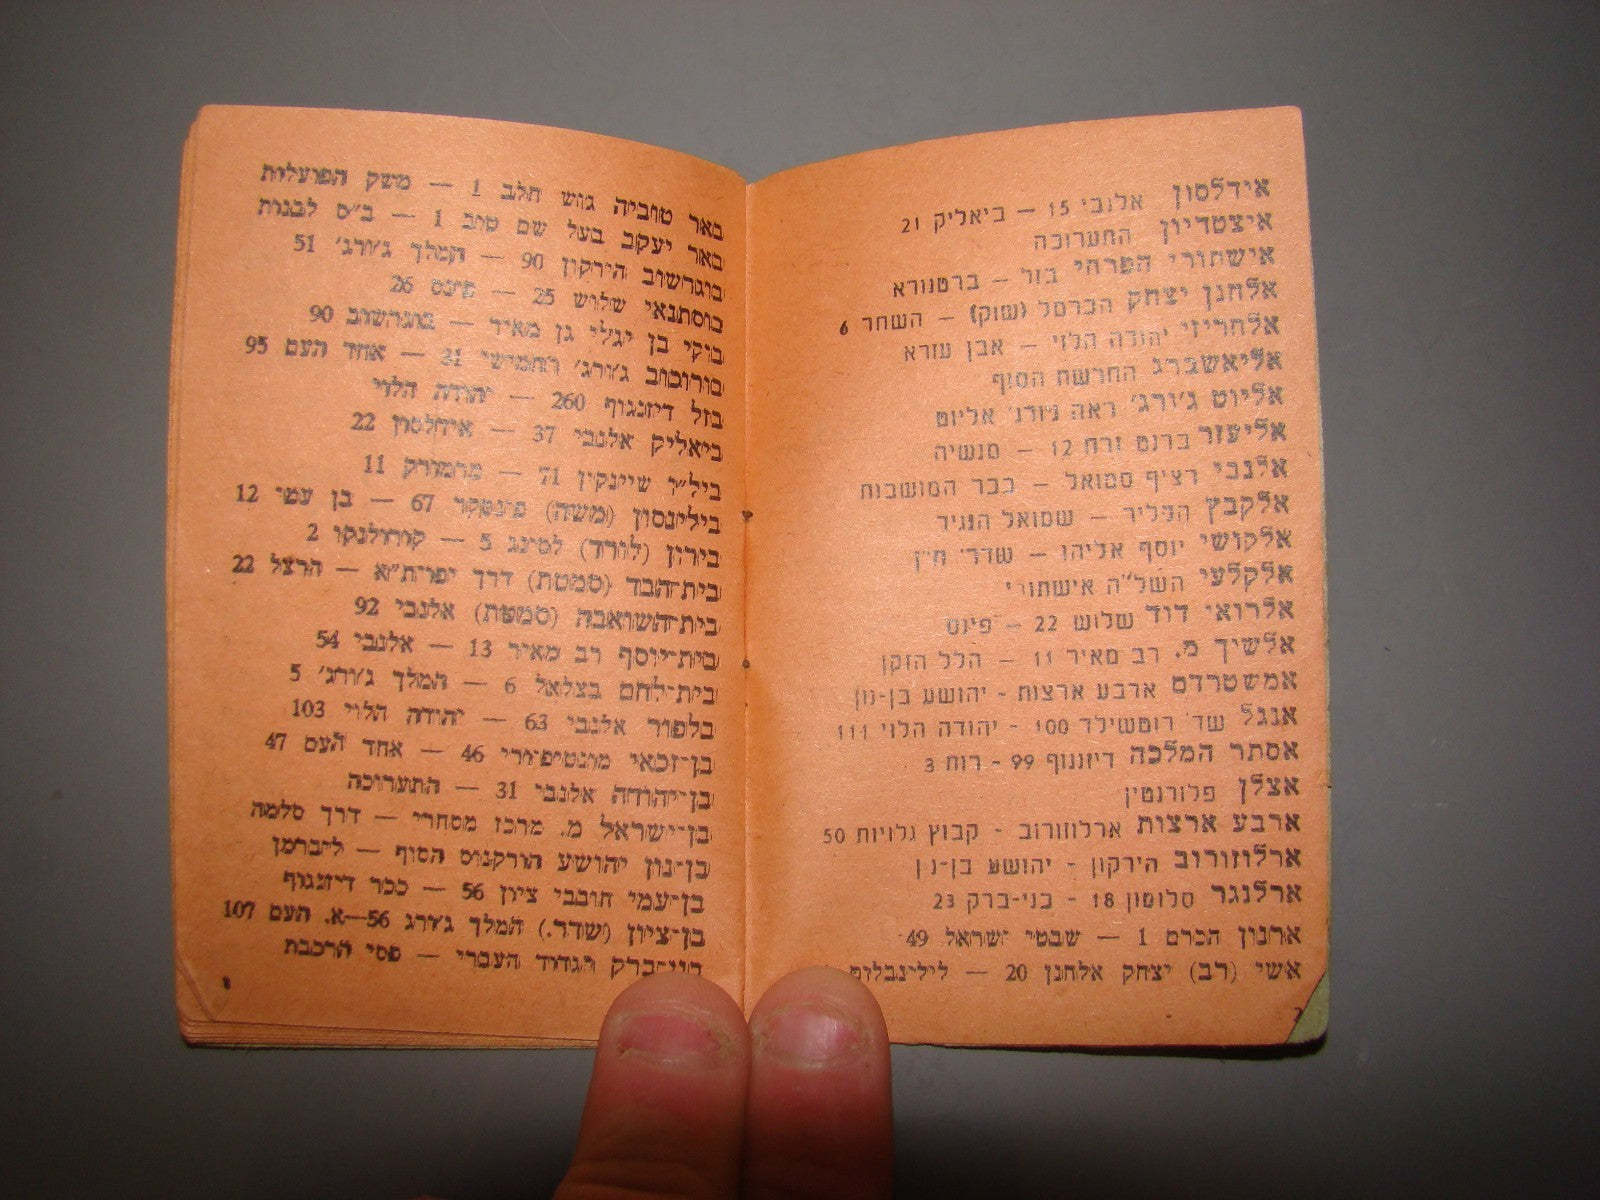 אידלסון אלנבי 15 — ביאליק 21
איצטדיון התערוכה
אישתורי הפרחי בזל — ברטנורא
אלחנן יצחק הכרמל (שוק) — השחר 6
אלחריזי יהודה הלוי — אבן עזרא
אליאשברג החרשת הסוף
אליוט ג'ורג' ראה ג'ורג' אליוט
אליעזר ברנט זרח 12 — מנשיה
אלנבי רציף סמואל — ככר המושבות
אלקבץ הקליר — שמואל הנגיד
אלקושי יוסף אליהו — שדר' ח"ן
אלקלעי השל"ה אישתורי
אלרואי דוד שלוש 22 — פינס
אלשיך מ. רב מאיר 11 — הלל הזקן
אמשטרדם ארבע ארצות - יהושע בן-נון
אנגל שד' רוטשילד 100 - יהודה הלוי 111
אסתר המלכה דיזנגוף 99 - רות 3
אצלן פלורנטין
ארבע ארצות ארלוזורוב - קבוץ גלויות 50
ארלוזורוב הירקון - יהושע בן-נון
ארלנגר סלומון 18 - בני-ברק 23
ארנון הכרם 1 — שבטי ישראל 49
אשי (רב) יצחק אלחנן 20 — לילינבלום
7
באר טוביה גוש חלב 1 — משק הפועלות
באר יעקב בעל שם טוב 1 — ב"ס לבנות
בוגרשוב הירקון 90 — המלך ג'ורג' 51
בוסתנאי שלוש 25 — פינס 26
בוקי בן יגלי גן מאיר — בוגרשוב 90
בורוכוב ג'ורג' החמישי 31 — אחד העם 95
בזל דיזנגוף 260 — יהודה הלוי
ביאליק אלנבי 37 — אידלסון 22
ביל"ו שיינקין 71 — מרמורק 11
בילינסון (משה) פינסקר 67 — בן עמי 12
בירון (לורד) לסינג 5 — קורולנקו 2
בית־הבד (סמטת) דרך יפו־ת"א — הרצל 22
בית־השואבה (סמטת) אלנבי 92
בית־יוסף רב מאיר 13 — אלנבי 54
בית־לחם בצלאל 6 — המלך ג'ורג' 5
בלפור אלנבי 63 — יהודה הלוי 103
בן־זכאי מונטיפיורי 46 — אחד העם 47
בן־יהודה אלנבי 31 — התערוכה
בן־ישראל מ. מרכז מסחרי — דרך סלמה
בן־נון יהושע הורקנוס הסוף — ליברמן
בן־עמי חובבי ציון 56 — ככר דיזנגוף
בן־ציון (שדר.) המלך ג'ורג 56—א. העם 107
בני־ברק הגדוד העברי — פסי הרכבת
8